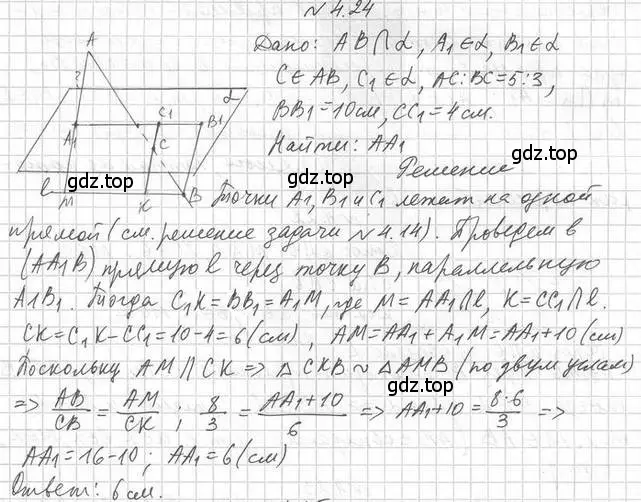 № 4.24
Дано: AB∩α, A₁∈α, B₁∈α
C∈AB, C₁∈α, AC:BC=5:3,
BB₁=10см, CC₁=4см.
Найти: AA₁
Решение
A
?
α
A1
C1
B1
C
gdz.top
gdz.top
l
M
K
B
Точки A₁, B₁ и C₁ лежат на одной
прямой (см. решение задачи №4.14). Проведем в
(AA₁B) прямую l через точку B, параллельную
A₁B₁. Тогда C₁K=BB₁=A₁M, где M=AA₁∩l, K=CC₁∩l.
CK=C₁K-CC₁=10-4=6(см), AM=AA₁+A₁M=AA₁+10(см)
Поскольку AM∥CK => △CKB ~ △AMB (по двум углам)
=> AB/CB = AM/CK ; 8/3 = (AA₁+10)/6 => AA₁+10 = 8·6/3 =>
AA₁=16-10; AA₁=6(см)
gdz.top
Ответ: 6см.